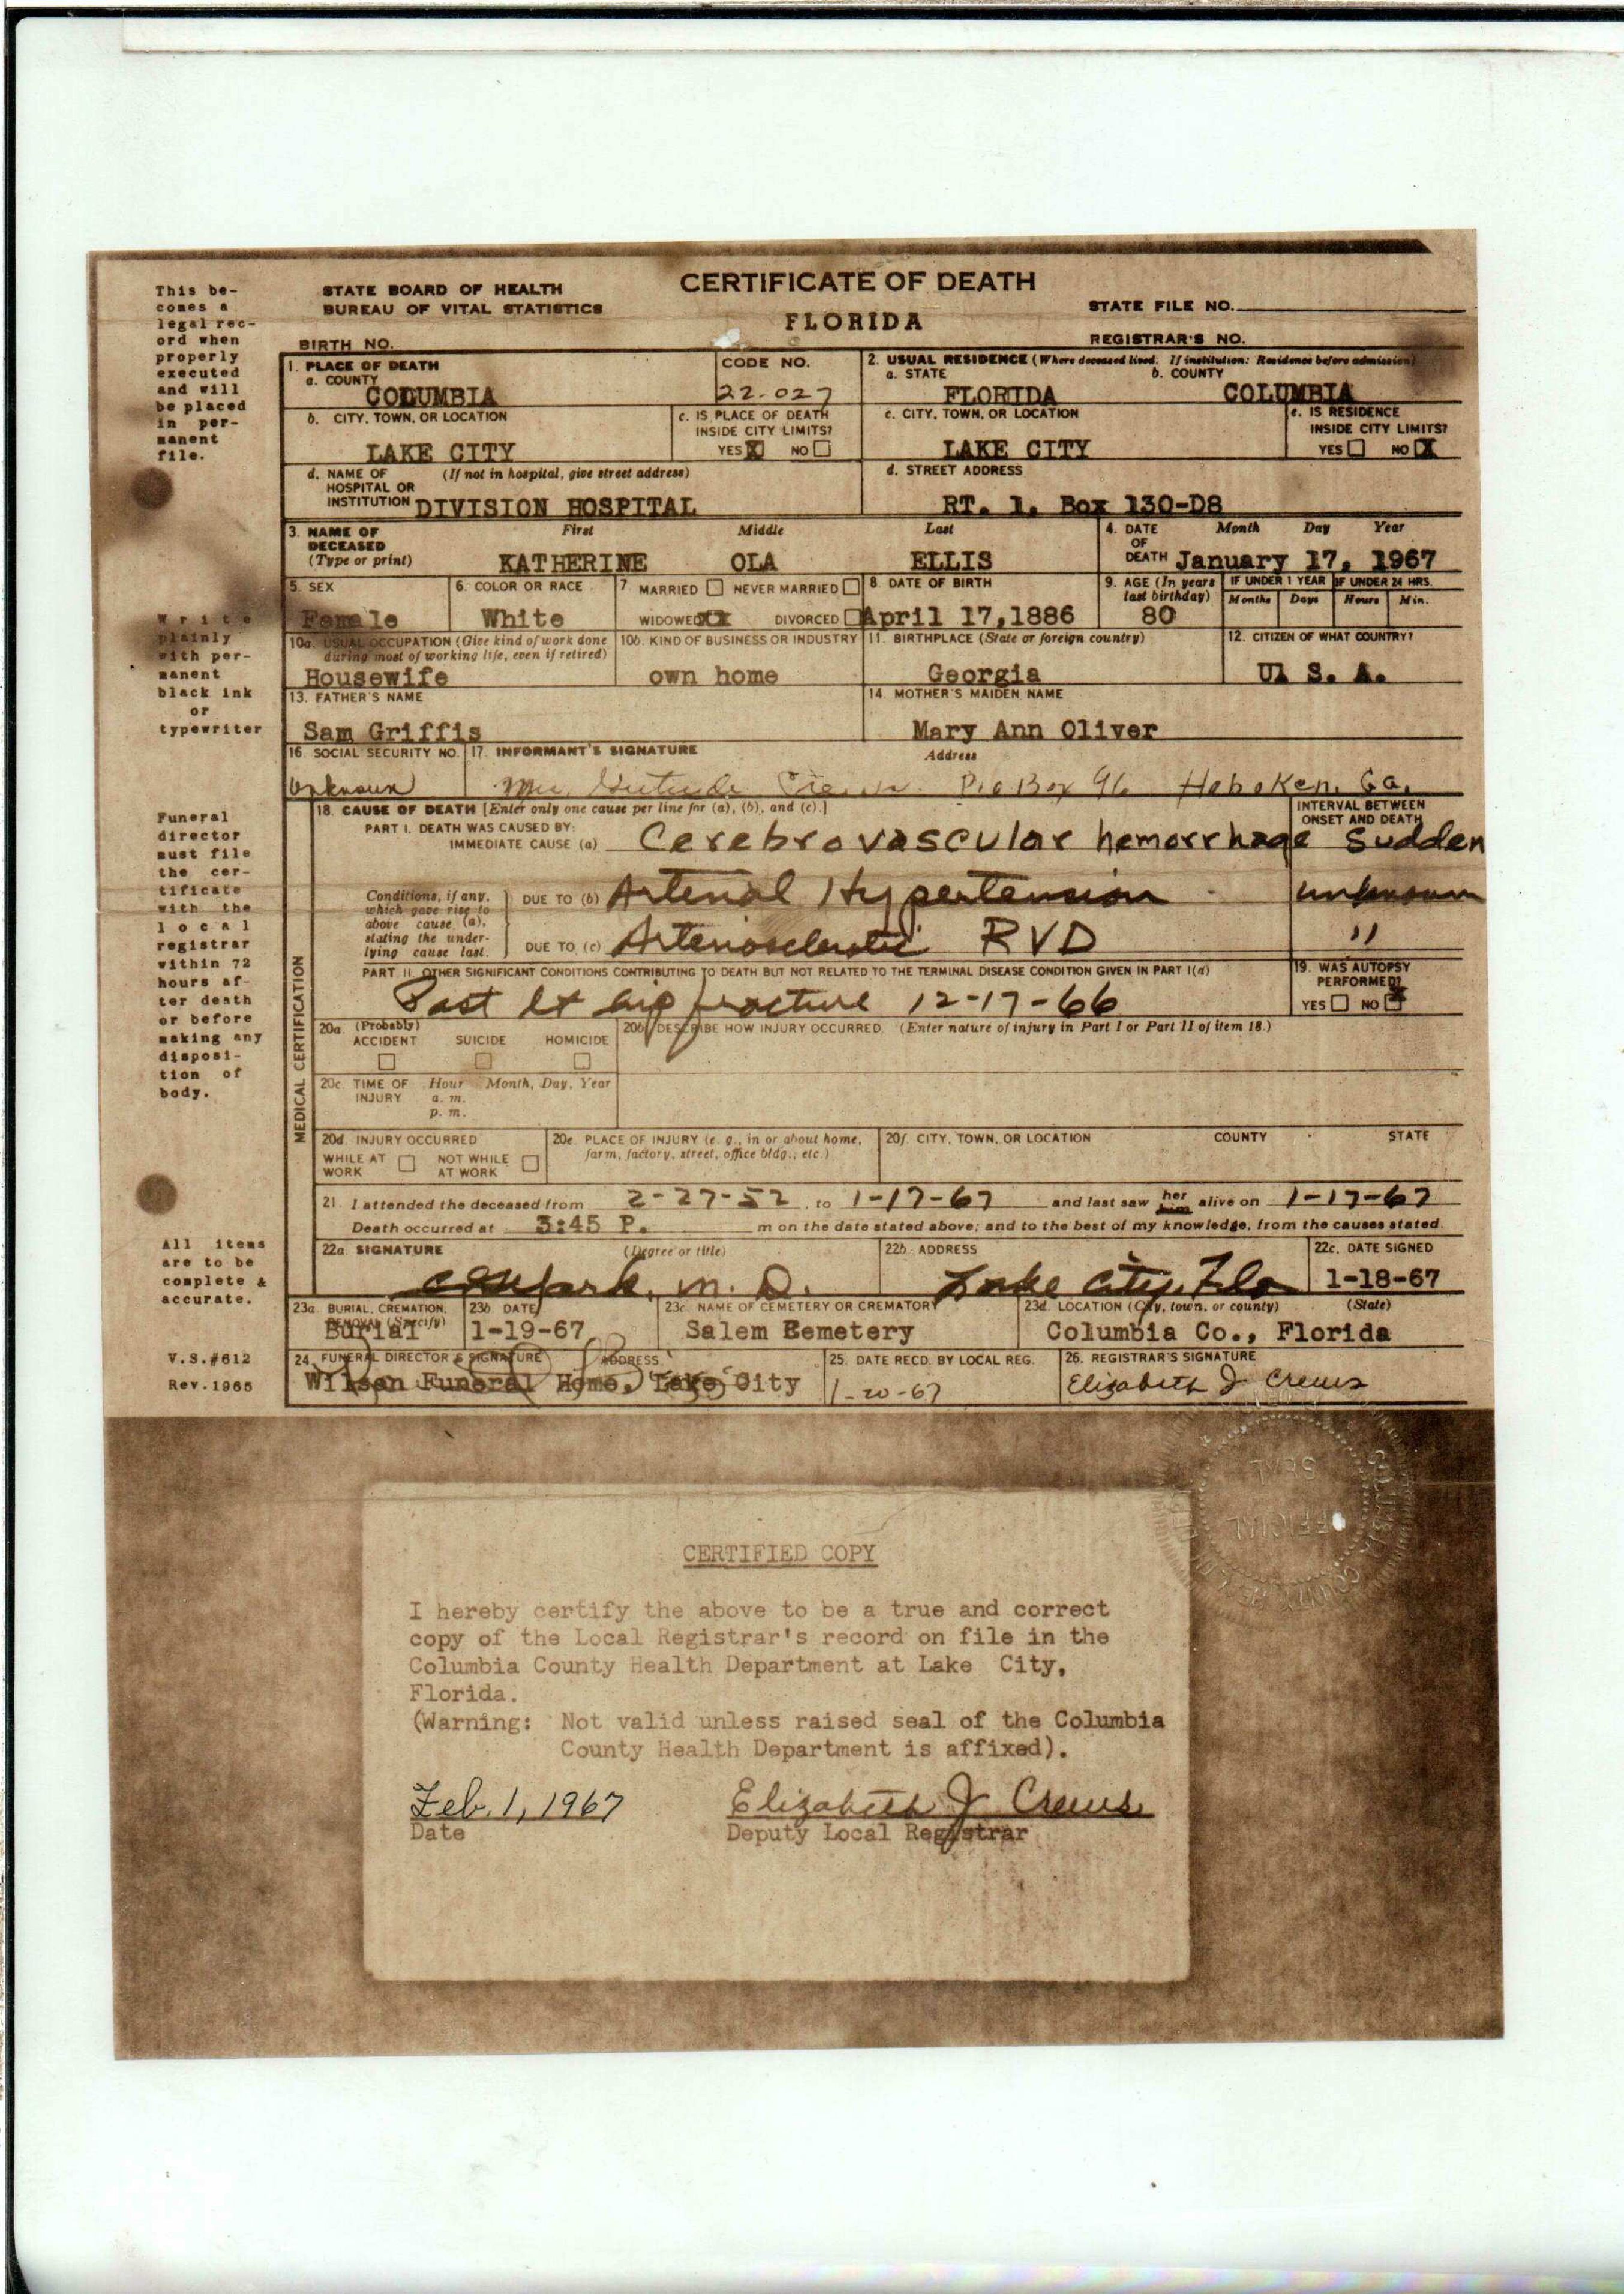 This be-
comes a
legal rec-
ord when
properly
executed
and will
be placed
in per-
manent
file.
Write
plainly
with per-
manent
black ink
or
typewriter
Funeral
director
must file
the cer-
tificate
with the
local
registrar
within 72
hours af-
ter death
or before
making any
disposi-
tion of
body.
All items
are to be
complete &
accurate.
V.S.#612
Rev.1965
STATE BOARD OF HEALTH
BUREAU OF VITAL STATISTICS
CERTIFICATE OF DEATH
FLORIDA
STATE FILE NO.
BIRTH NO.
REGISTRAR'S NO.
1. PLACE OF DEATH
a. COUNTY
COLUMBIA
CODE NO.
22-027
2. USUAL RESIDENCE (Where deceased lived. If institution: Residence before admission)
a. STATE b. COUNTY
FLORIDA COLUMBIA
b. CITY, TOWN, OR LOCATION
LAKE CITY
c. IS PLACE OF DEATH
INSIDE CITY LIMITS?
YES X NO
c. CITY, TOWN, OR LOCATION
LAKE CITY
e. IS RESIDENCE
INSIDE CITY LIMITS?
YES NO X
d. NAME OF (If not in hospital, give street address)
HOSPITAL OR
INSTITUTION DIVISION HOSPITAL
d. STREET ADDRESS
RT. 1. Box 130-D8
3. NAME OF First Middle Last
DECEASED
(Type or print) KATHERINE OLA ELLIS
4. DATE Month Day Year
OF
DEATH January 17, 1967
5. SEX
Female
6. COLOR OR RACE
White
7. MARRIED NEVER MARRIED
WIDOWED XX DIVORCED
8. DATE OF BIRTH
April 17,1886
9. AGE (In years
last birthday)
80
IF UNDER 1 YEAR IF UNDER 24 HRS.
Months Days Hours Min.
10a. USUAL OCCUPATION (Give kind of work done
during most of working life, even if retired)
Housewife
10b. KIND OF BUSINESS OR INDUSTRY
own home
11. BIRTHPLACE (State or foreign country)
Georgia
12. CITIZEN OF WHAT COUNTRY?
U1 S. A.
13. FATHER'S NAME
Sam Griffis
14. MOTHER'S MAIDEN NAME
Mary Ann Oliver
16. SOCIAL SECURITY NO.
Unknown
17. INFORMANT'S SIGNATURE Address
Mrs. Gertrude Crews P.O Box 96 Hoboken, Ga.
18. CAUSE OF DEATH [Enter only one cause per line for (a), (b), and (c).]
INTERVAL BETWEEN
ONSET AND DEATH
PART I. DEATH WAS CAUSED BY:
IMMEDIATE CAUSE (a) Cerebrovascular hemorrhage Sudden
Conditions, if any,
which gave rise to
above cause (a),
stating the under-
lying cause last.
DUE TO (b) Arterial Hypertension unknown
DUE TO (c) Arteriosclerotic RVD "
PART II. OTHER SIGNIFICANT CONDITIONS CONTRIBUTING TO DEATH BUT NOT RELATED TO THE TERMINAL DISEASE CONDITION GIVEN IN PART I(a)
Past Lt hip fracture 12-17-66
19. WAS AUTOPSY
PERFORMED?
YES NO X
MEDICAL CERTIFICATION
20a. (Probably)
ACCIDENT SUICIDE HOMICIDE
20b. DESCRIBE HOW INJURY OCCURRED. (Enter nature of injury in Part I or Part II of item 18.)
20c. TIME OF Hour Month, Day, Year
INJURY a. m.
p. m.
20d. INJURY OCCURRED
WHILE AT NOT WHILE
WORK AT WORK
20e. PLACE OF INJURY (e. g., in or about home,
farm, factory, street, office bldg., etc.)
20f. CITY, TOWN, OR LOCATION COUNTY STATE
21. I attended the deceased from 2-27-52 to 1-17-67 and last saw her him alive on 1-17-67
Death occurred at 3:45 P. m on the date stated above; and to the best of my knowledge, from the causes stated.
22a. SIGNATURE (Degree or title)
M. D.
22b. ADDRESS
Lake City, Fla
22c. DATE SIGNED
1-18-67
23a. BURIAL, CREMATION,
REMOVAL (Specify)
Burial
23b. DATE
1-19-67
23c. NAME OF CEMETERY OR CREMATORY
Salem Cemetery
23d. LOCATION (City, town, or county) (State)
Columbia Co., Florida
24. FUNERAL DIRECTOR'S SIGNATURE ADDRESS
Wilson Funeral Home, Lake City
25. DATE RECD. BY LOCAL REG.
1-20-67
26. REGISTRAR'S SIGNATURE
Elizabeth J Crews
OFFICIAL
SEAL
CERTIFIED COPY
I hereby certify the above to be a true and correct
copy of the Local Registrar's record on file in the
Columbia County Health Department at Lake City,
Florida.
(Warning: Not valid unless raised seal of the Columbia
County Health Department is affixed).
Feb. 1, 1967 Elizabeth J Crews
Date Deputy Local Registrar